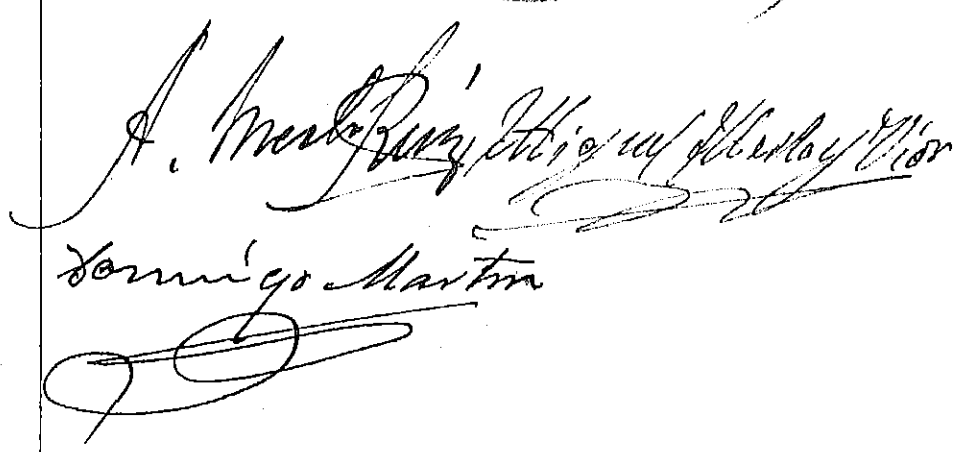 A. Merlo Ruiz Miguel Merloy Vior
Domingo Martin